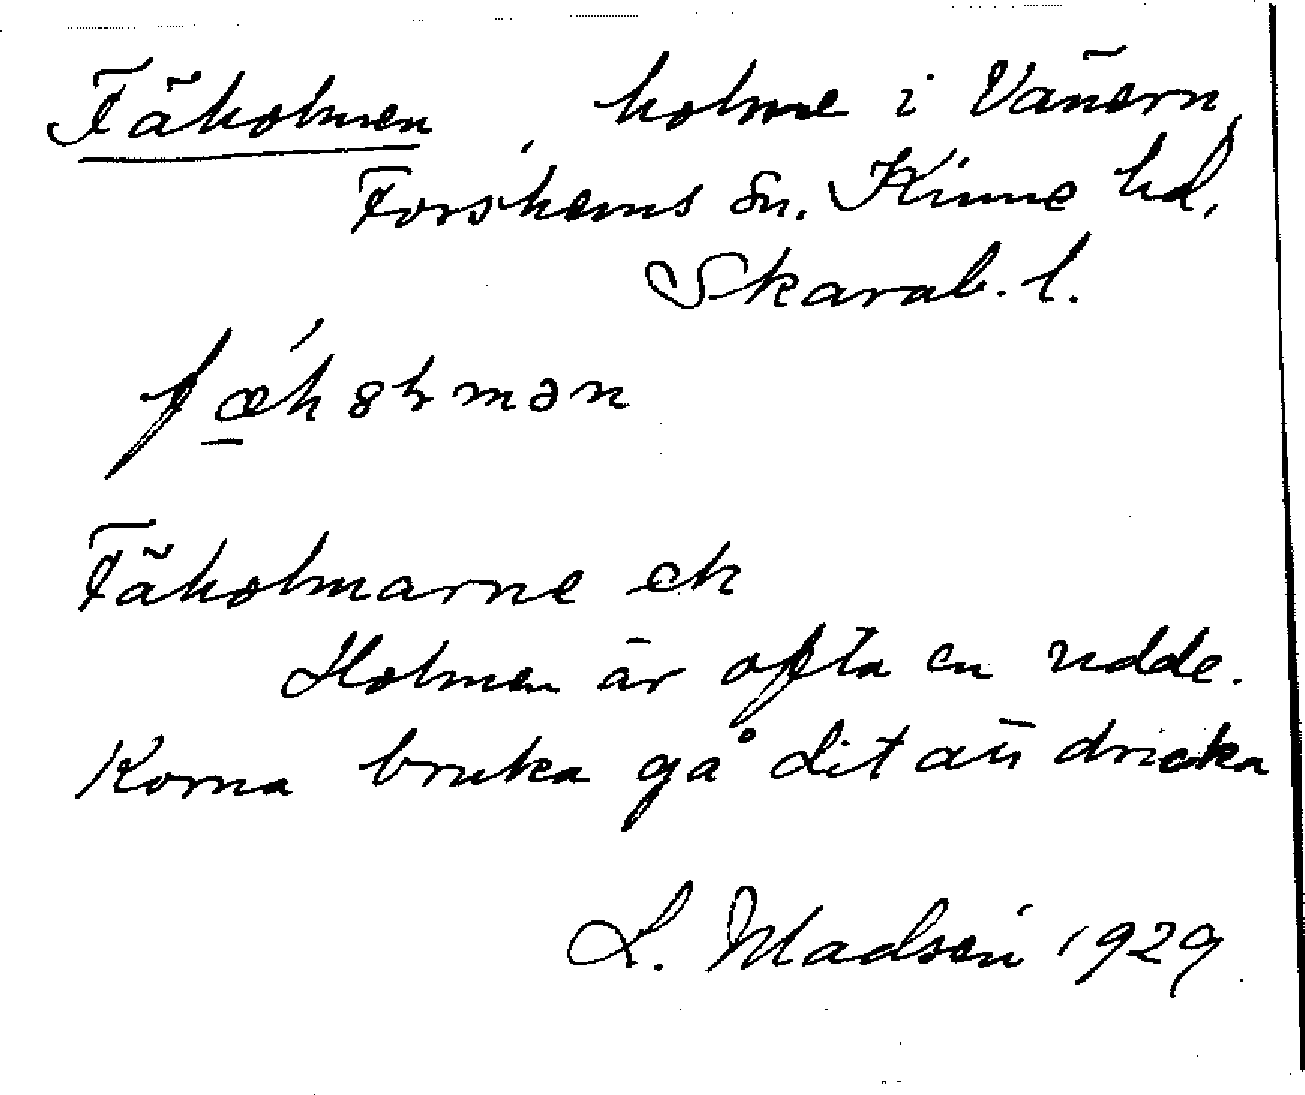 Fäholmen, holme i Vänern,
Forshems sn. Kinne hd,
Skarab. l.
Fäholmarne ek
Holmen är ofta en udde.
Korna bruka gå dit att dricka
L. Madsén 1929